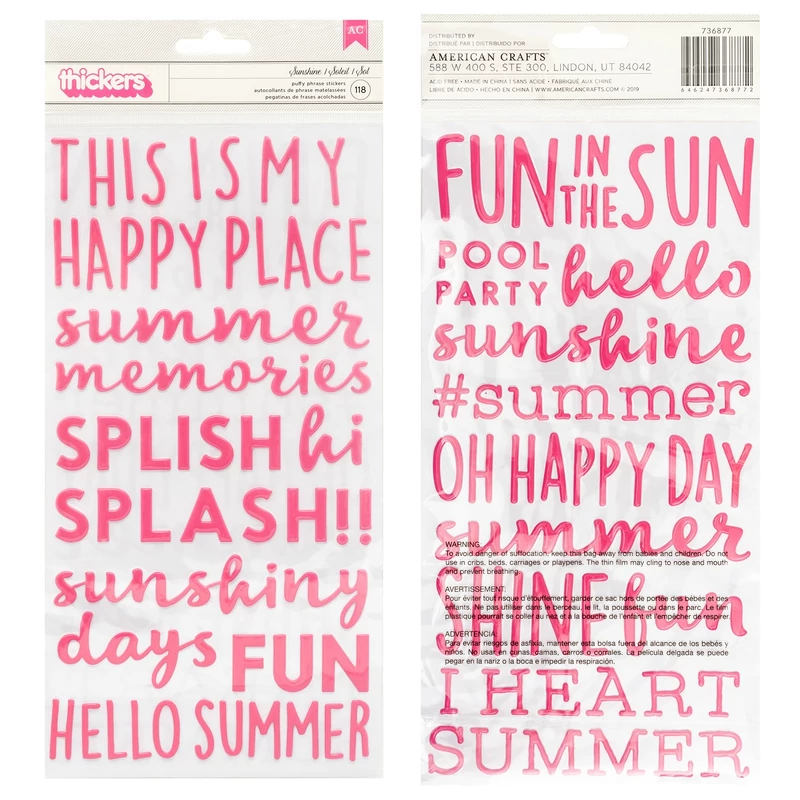 AC
thickers
Sunshine / Soleil / Sol
puffy phrase stickers
autocollants de phrase matelassées
pegatinas de frases acolchadas
118
THIS IS MY
HAPPY PLACE
summer
memories
SPLISH hi
SPLASH!!
sunshiny
days FUN
HELLO SUMMER
DISTRIBUTED BY
DISTRIBUÉ PAR | DISTRIBUIDO POR
AMERICAN CRAFTS
588 W 400 S, STE 300, LINDON, UT 84042
ACID FREE • MADE IN CHINA | SANS ACIDE • FABRIQUÉ AUX CHINE
LIBRE DE ÁCIDO • HECHO EN CHINA | WWW.AMERICANCRAFTS.COM © 2019
736877
6 46247 36877 2
FUN IN THE SUN
POOL PARTY hello
sunshine
#summer
OH HAPPY DAY
summer
WARNING:
To avoid danger of suffocation, keep this bag away from babies and children. Do not
use in cribs, beds, carriages or playpens. The thin film may cling to nose and mouth
and prevent breathing.
SHINE fun
AVERTISSEMENT:
Pour éviter tout risque d'étouffement, garder ce sac hors de portée des bébés et des
enfants. Ne pas utiliser dans le berceau, le lit, la poussette ou dans le parc. Le film
plastique pourrait se coller au nez et à la bouche de l'enfant et l'empêcher de respirer.
ADVERTENCIA:
Para evitar riesgos de asfixia, mantener esta bolsa fuera del alcance de los bebés y
niños. No usar en cunas, camas, carros o corrales. La película delgada se puede
pegar en la nariz o la boca e impedir la respiración.
I HEART
SUMMER